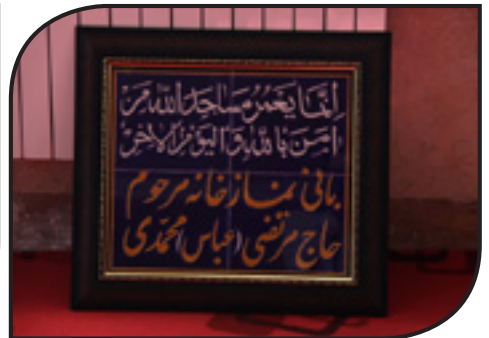 إنما يعمر مساجد الله من
امن بالله و اليوم الاخر
بانی نمازخانه مرحوم
حاج مرتضی (عباس) محمدی